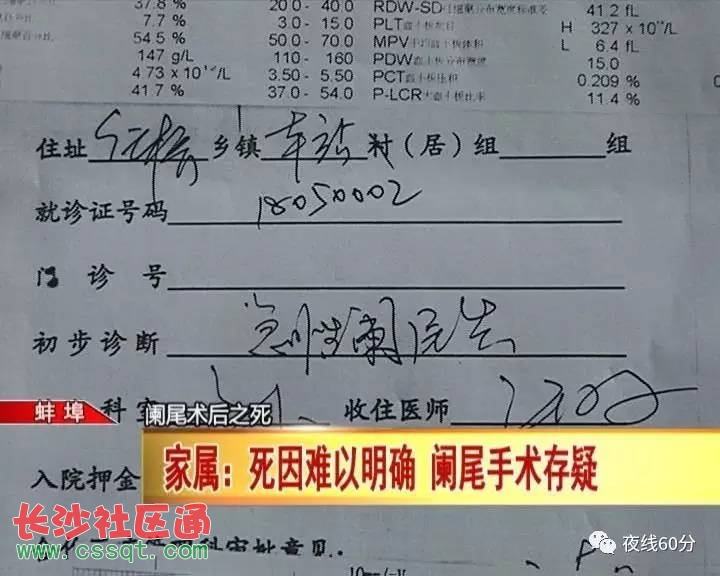 37.8 % 20.0 - 40.0 RDW-SD 41.2 fL
7.7 % 3.0 - 15.0 PLT H 327 x 10⁹/L
54.5 % 50.0 - 70.0 MPV L 6.4 fL
147 g/L 110 - 160 PDW 15.0
4.73 x 10¹²/L 3.50 - 5.50 PCT 0.209 %
41.7 % 37.0 - 54.0 P-LCR 11.4 %
住址 乡镇 车站 村（居）组 组
就诊证号码 18050002
门诊号
初步诊断 急性阑尾炎
科室 收住医师
蚌埠 阑尾术后之死
家属：死因难以明确 阑尾手术存疑
入院押金
长沙社区通
www.cssqt.com
审批意见：
夜线60分